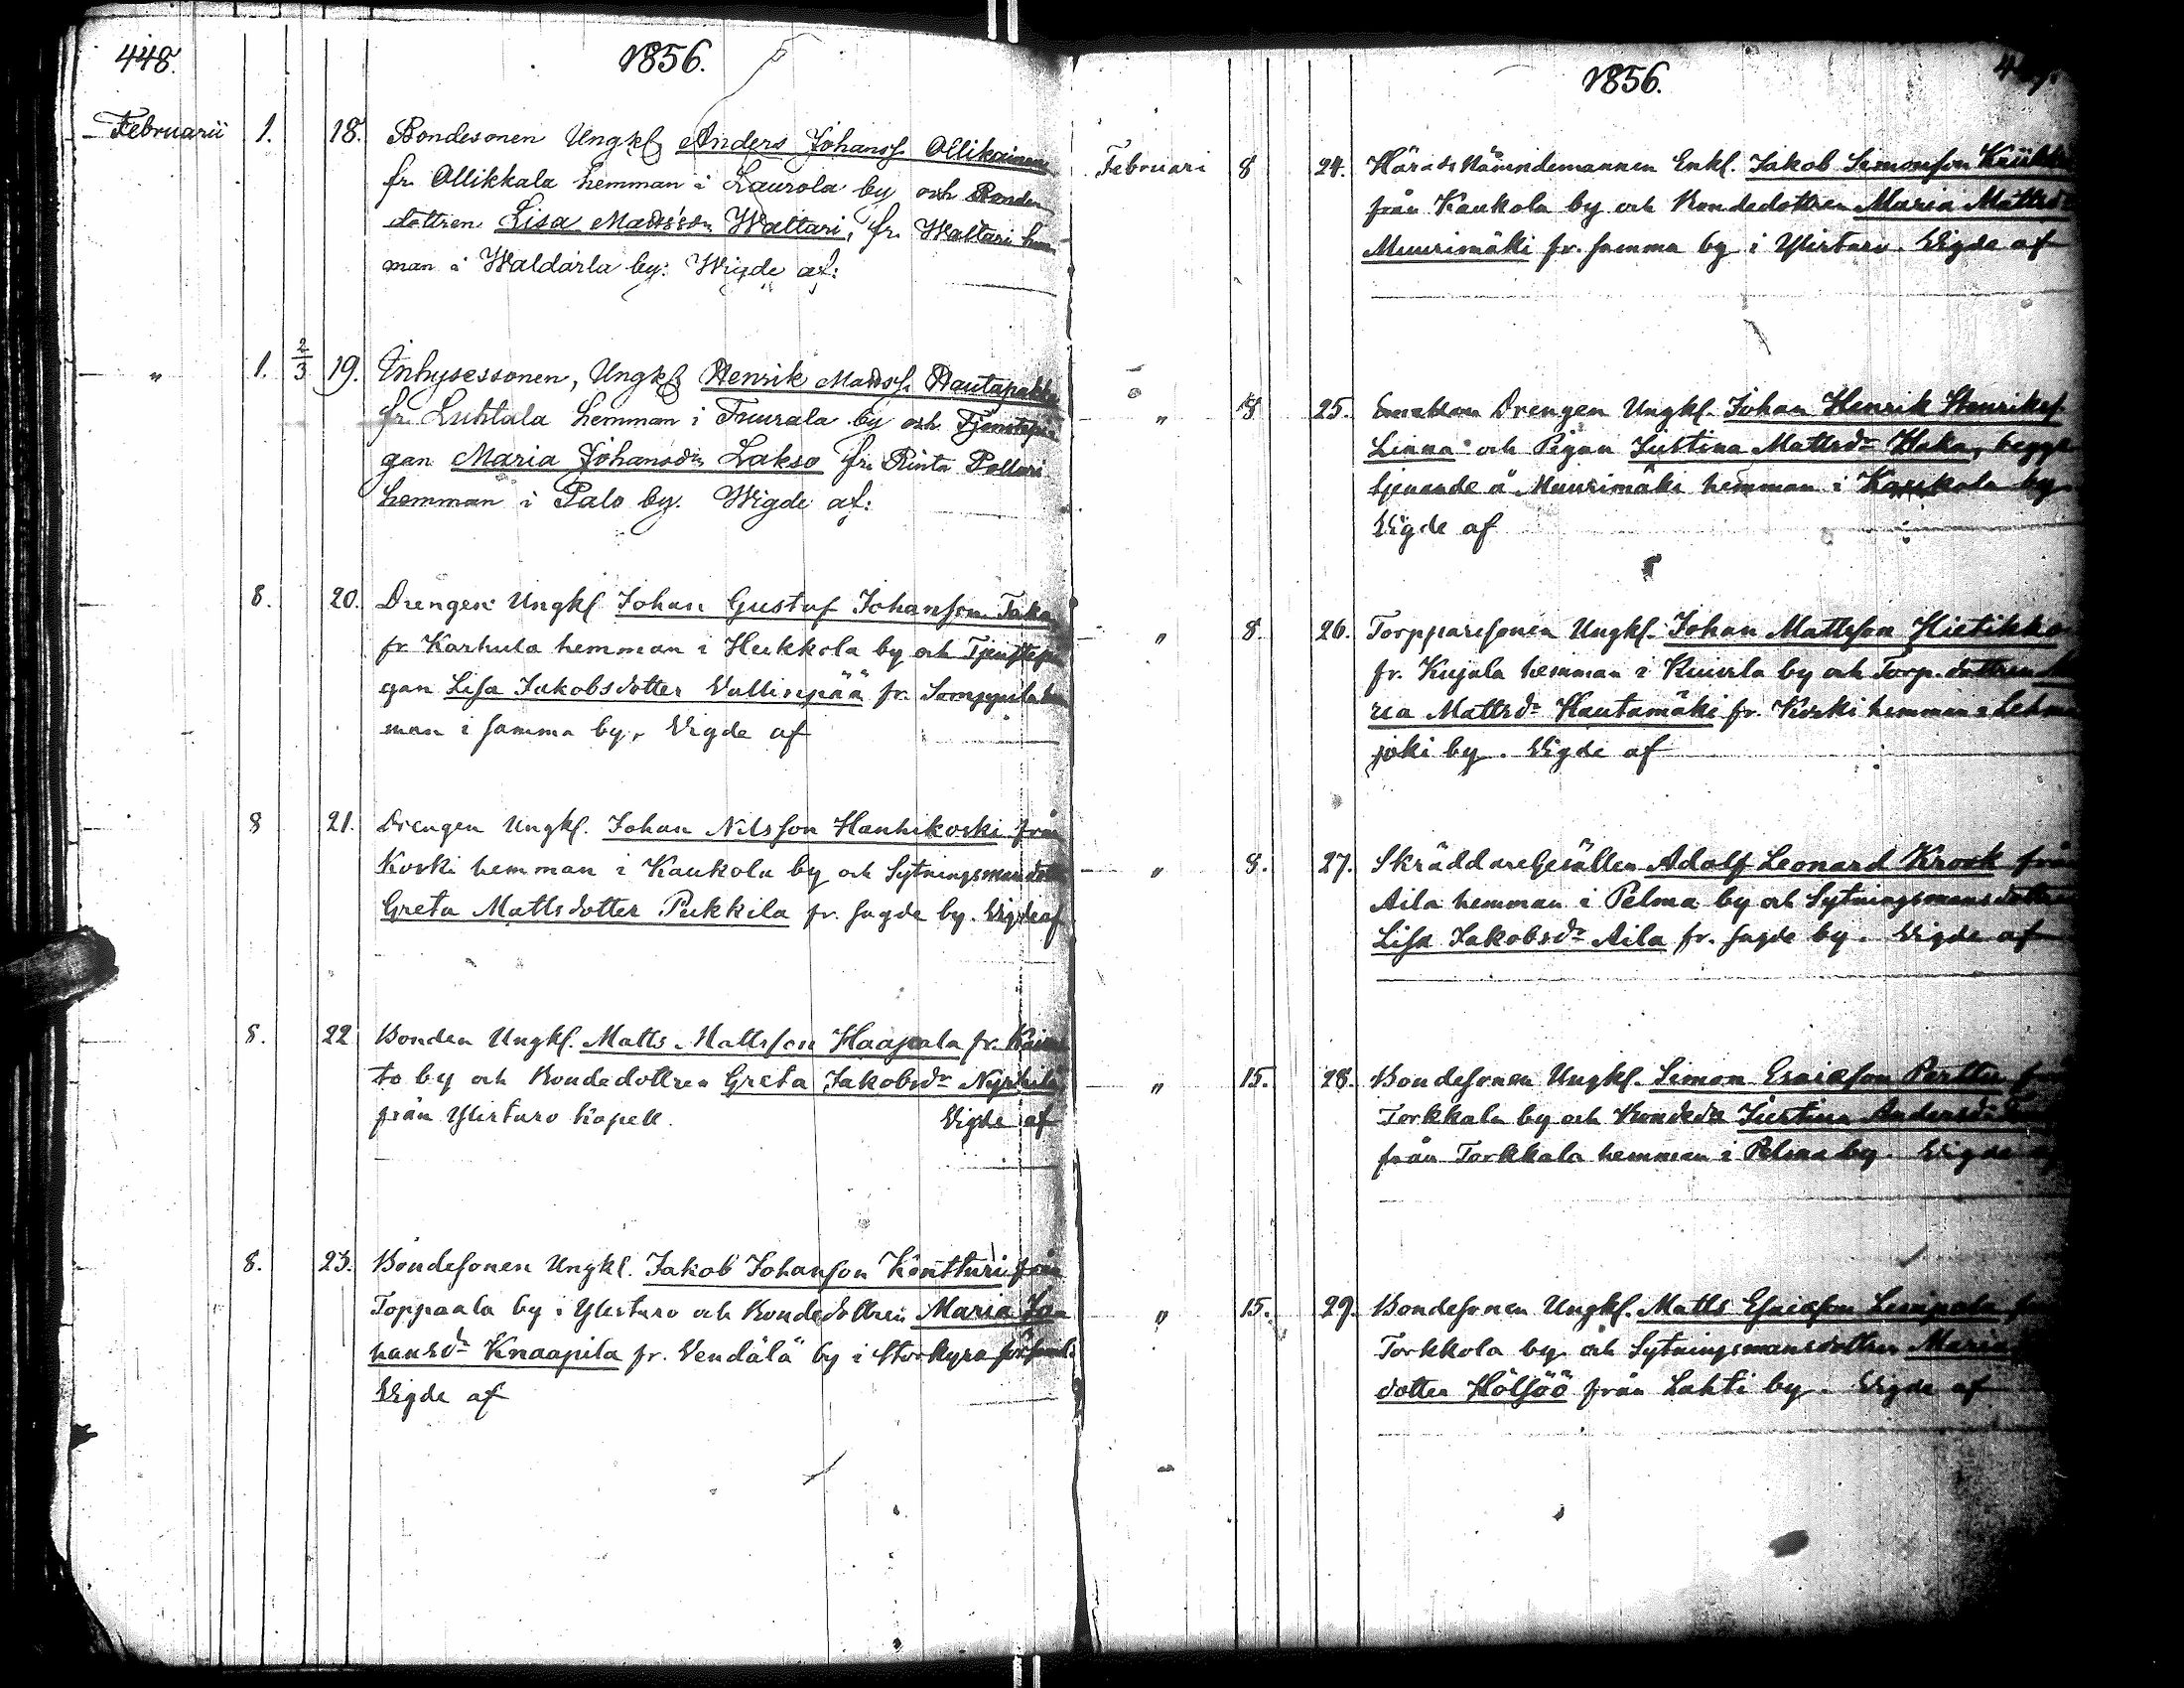 448.
1856.
Februarii 1. 18. Bondesonen Ungkl Anders Johanss. Ollikainen
fr. Ollikkala hemman i Laurola by och Bonde
dottren Lisa Mattsdr Waltari, fr. Waltari hem
man i Waldarla by: Wigde af:
" 1. 2/3 19. Inhysessonen, Ungkl Henrik Matss. Rautapakka
fr. Luhtala hemman i Tuurala by och Tjenstepi
gan Maria Johansdr Lakso fr. Rinta Pollari
hemman i Palo by. Wigde af:
8. 20. Drengen Ungkl Johan Gustaf Johansson Taka
fr. Karhula hemman i Heikkola by och Tjenstepi
gan Lisa Jakobsdotter Vallinpää fr. hem
man i samma by, Vigde af
8 21. Drengen Ungkl. Johan Nilsson Hanhikoski från
Koski hemman i Kaukola by och Sytningsmansdottr
Greta Mattsdotter Pukkila fr. sagde by. Vigde af
8. 22 Bonden Ungkl. Matts Mattsson Haapala fr.
to by och Bondedottren Greta Jakobsdr
från Ylistaro Kapell. Vigde af
8. 23. Bondesonen Ungkl. Jakob Johansson Köntturi från
Toppaala by i Ylistaro och Bondedottren Maria Jo
hansdr Knaapila fr. Vendälä by i Storkyro
Vigde af
1856.
Februari 8 24. Härads Nämndemannen Enkl. Jakob Simonsson
från Kaukola by och Bondedottren Maria Mattsd
Muurimäki fr. samma by i Ylistaro. Vigde af
" 8 25. Drengen Ungkl. Johan Henrik Henrikss.
Linna och Pigan Justina Mattsdr Haka, begge
tjenande å Muurimäki hemman i Kaukola by
Vigde af
" 8. 26. Torpparesonen Ungkl. Johan Mattsson Hietikko
fr. Kujala hemman i by och Torp.dottren Ma
ria Mattsdr Hautamäki fr. Koski hemman i Lehma
joki by. Vigde af
" 8. 27. SkräddareGesällen Adolf Leonard Krook från
Aila hemman i Pelma by och Sytningsmansdottren
Lisa Jakobsdr Aila fr. sagde by. Vigde af
" 15. 28. Bondesonen Ungkl. Simon Ericsson Perttu
Torkkala by och Bondedr Justina Andersdr
från Torkkala hemman i Pelma by. Vigde af
" 15. 29. Bondesonen Ungkl. Matts Esaiasson Leinpala
Torkkola by och Sytningsmansdottren Maria
dotter Hölsöö från Lahti by. Vigde af